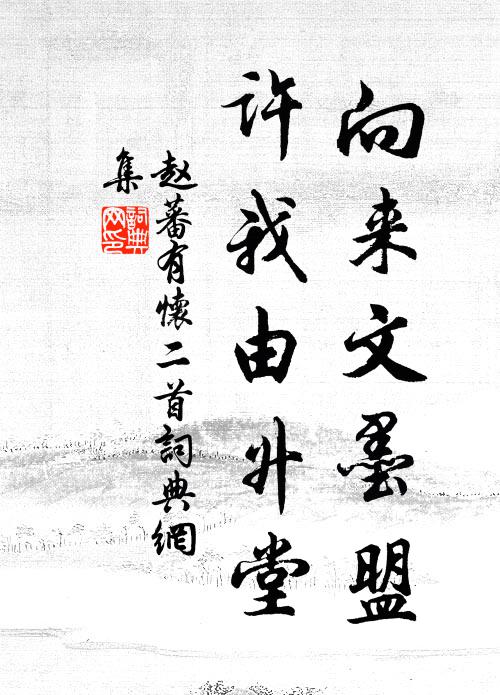 向来文墨盟
许我由升堂
赵蕃有懷二首詞典網
集
詞典网印